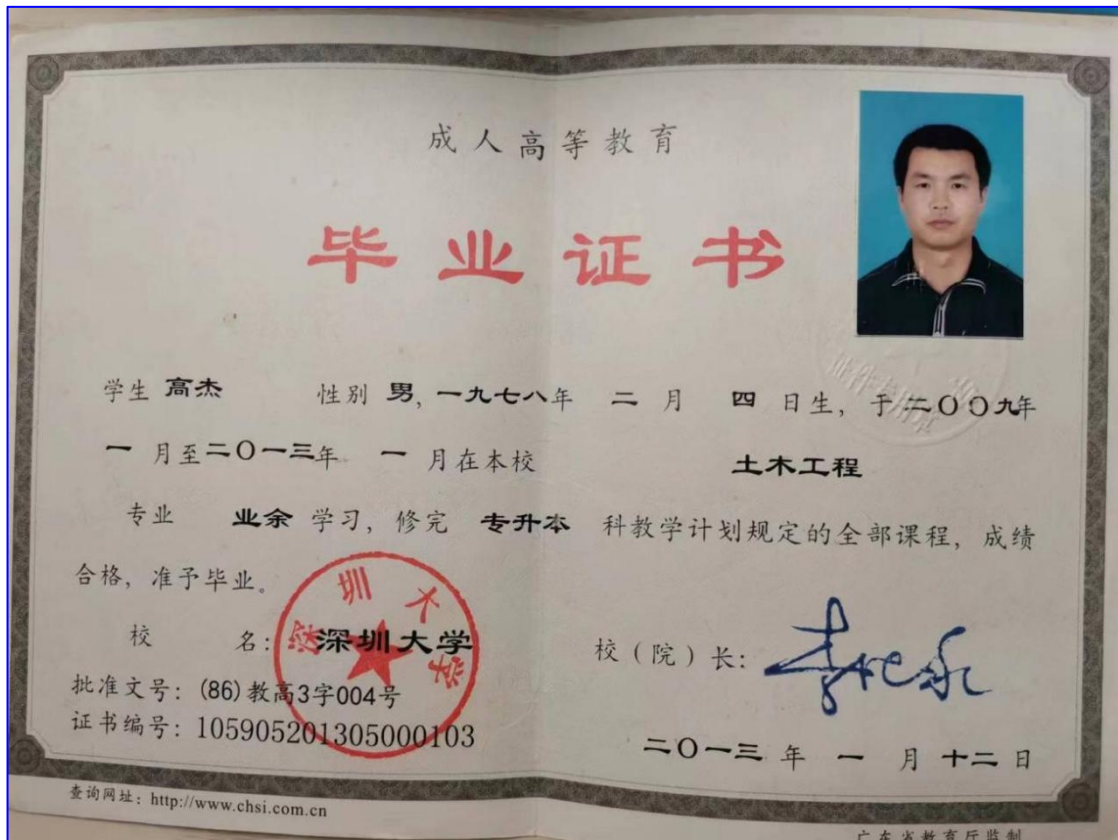 成人高等教育
毕业证书
学生 高杰 性别 男, 一九七八年 二 月 四 日生, 于二〇〇九年
一 月至二〇一三年 一 月在本校 土木工程
专业 业余 学习, 修完 专升本 科教学计划规定的全部课程, 成绩
合格, 准予毕业。
校 名: 深圳大学
深圳大学
校(院)长:
批准文号: (86)教高3字004号
证书编号: 105905201305000103
二〇一三 年 一 月 十二 日
查询网址: http://www.chsi.com.cn
广东省教育厅监制